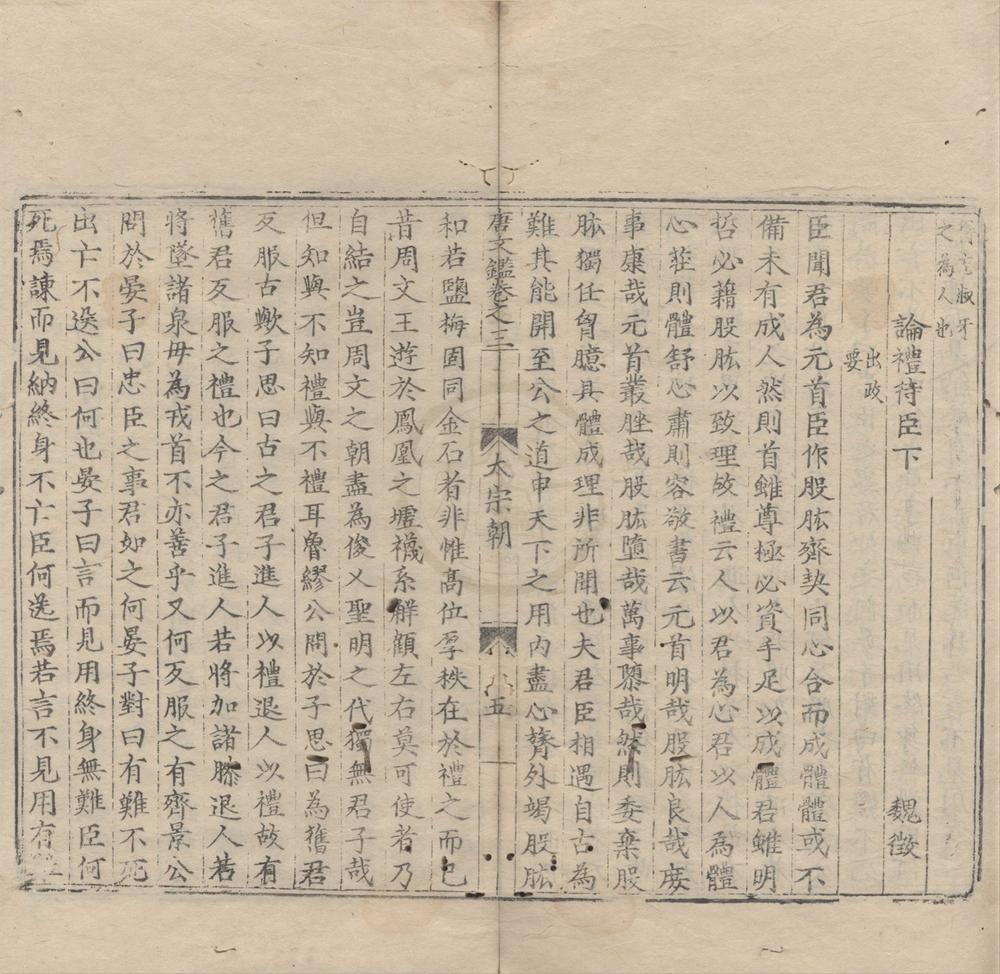 叔牙
之為人也
論禮待臣下
出政
要
魏徵
臣聞君為元首臣作股肱齊契同心合而成體體或不
備未有成人然則首雖尊極必資手足以成體君雖明
哲必藉股肱以致理故禮云人以君為心君以人為體
心莊則體舒心肅則容敬書云元首明哉股肱良哉庶
事康哉元首叢脞哉股肱墮哉萬事隳哉然則委棄股
肱獨任胷臆具體成理非所聞也夫君臣相遇自古為
難其能開至公之道申天下之用內盡心膂外竭股肱
唐文鑑卷之三
太宗朝
五
和若鹽梅固同金石者非惟高位孚秩在於禮之而已
昔周文王遊於鳳凰之墟襪系解顧左右莫可使者乃
自結之豈周文之朝盡為俊乂聖明之代獨無君子哉
但知與不知禮與不禮耳魯繆公問於子思曰為舊君
反服古歟子思曰古之君子進人以禮退人以禮故有
舊君反服之禮也今之君子進人若將加諸膝退人若
將墜諸泉毋為戎首不亦善乎又何反服之有齊景公
問於晏子曰忠臣之事君如之何晏子對曰有難不死
出亡不送公曰何也晏子曰言而見用終身無難臣何
死焉諫而見納終身不亡臣何送焉若言不見用有難